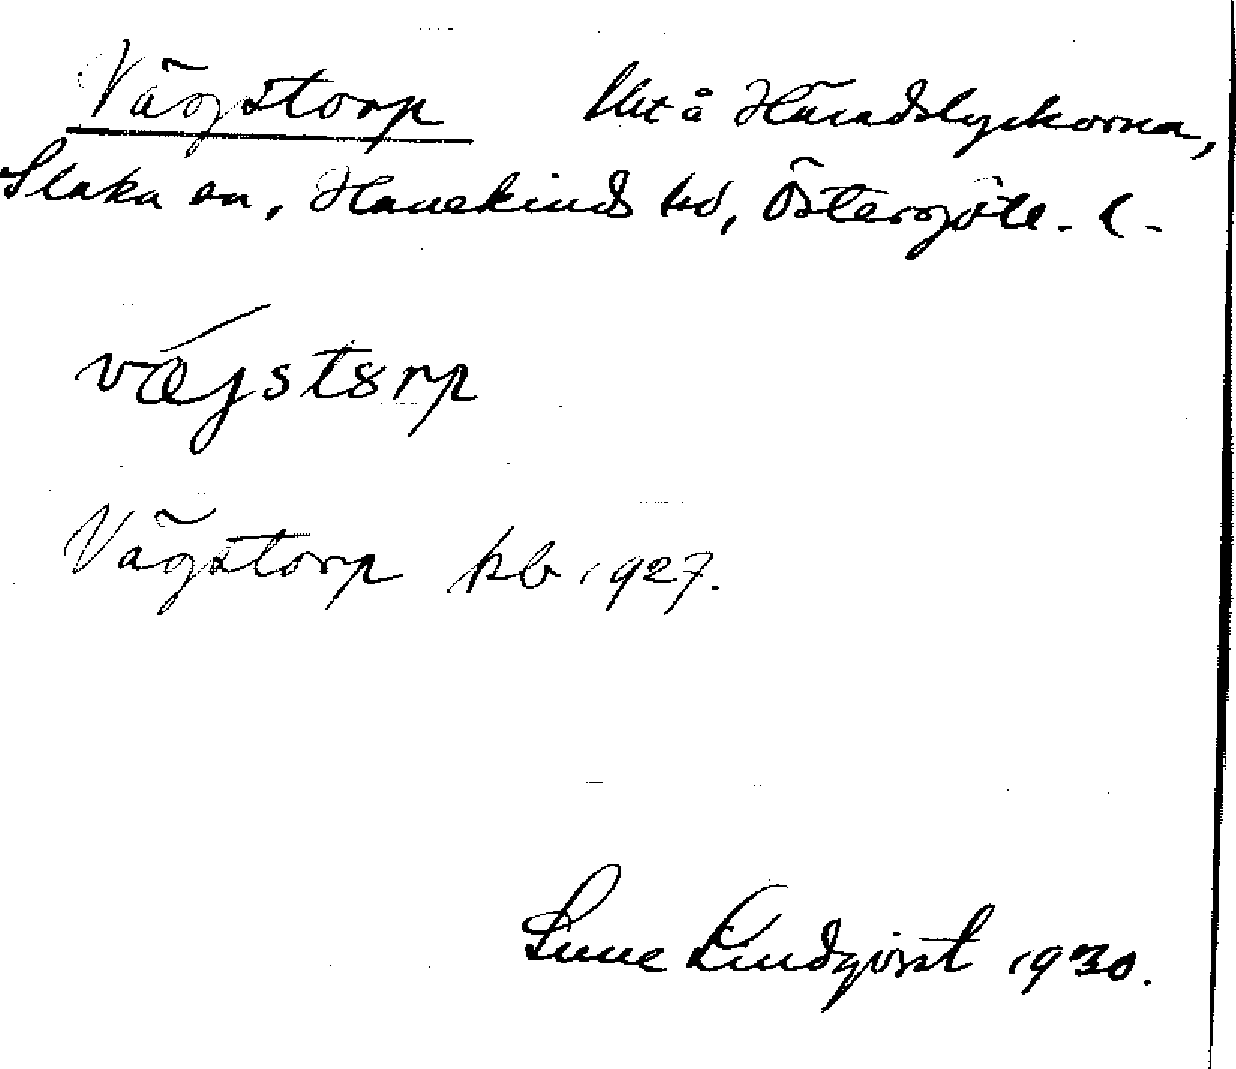 Vägstorp Utå Häradslyckorna,
Slaka sn, Hanekinds hd, Östergötl. l.
væjstørp
Vägstorp kb 1927.
Sune Lindqvist 1930.